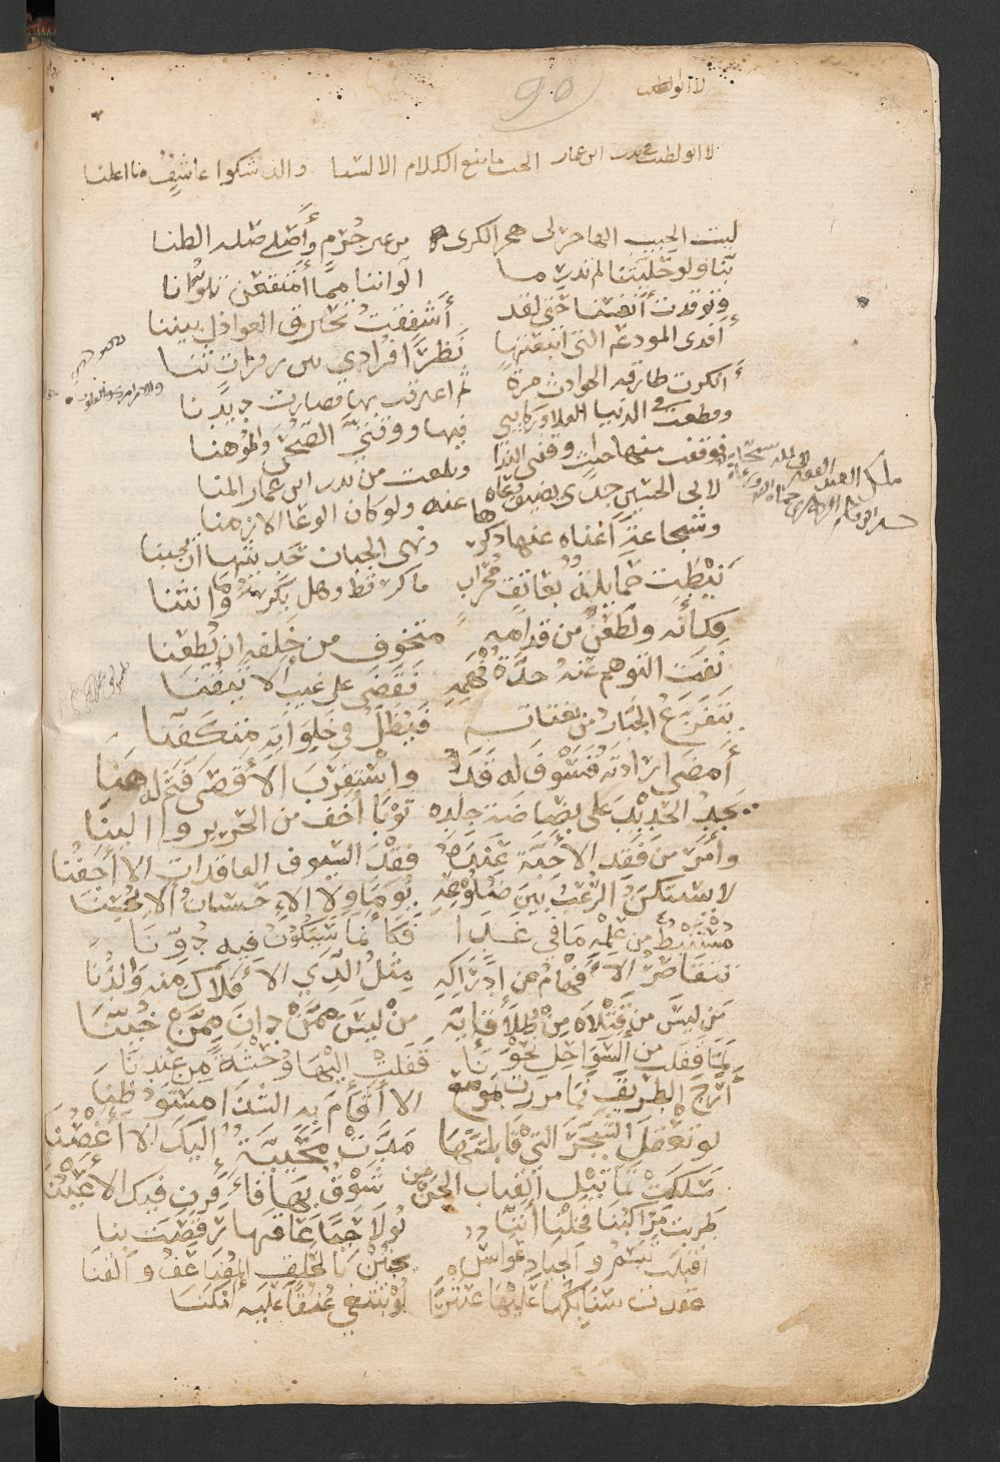 لابى الطيب
90
لابى الطيب يمدح بدر ابن عمار الحب ما منع الكلام الالسنا والذ شكوا عاشق ما اعلنا
ليت الحبيب الهاجرى هجر الكرى من غير جرم واصلى صله الضنا
بنا ولو حليتنا لم تدر ما الواننا مما امتقعن تلونا
وتوقدت انفسنا حتى لقد اشفقت تحترق العواذل بيننا
افدى المودعه التى اتبعتها نظرا فرادى بين زفرات ثنا
انكرت طارقه الحوادث مرة ثم اعترفت بها فصارت ديدنا
وقطعت فى الدنيا الفلا وركايبى فيها ووقتى الضحى والموهنا
فوقفت منها حيث وقفنى الندا وبلغت من بدر ابن عمار المنا
لابى الحسين جدى يضيق وعاه عنه ولو كان الوعا الازمنا
وشجاعة اغناه عنها ذكرها ونهى الجبان حديثها ان يجبنا
نيطت حمايله بعاتق محرب ما كر قط وهل يكر وما انثنا
فكانه والطعن من قدامه متخوف من خلفه ان يطعنا
نفت التوهم عنه حدة فهمه فقضى على غيب الامور تيقنا
يتفزع الجبار من بغتاته فيظل فى خلواته متكفنا
امضى ارادته فسوف له قد واستقرب الاقصى فثم له هنا
يجد الحديد على بضاضة جلده ثوبا اخف من الحرير والينا
وامر من فقد الاحبة عنده فقد السيوف الفاقدات الاجفنا
لا يستكن الرعب بين ضلوعه يوما ولا الاحسان الا يحسنا
مستنبط من علمه ما فى غد فكانما سيكون فيه دونا
تتقاصر الافهام عن ادراكه مثل الذى الافلاك منه والدنا
من ليس من قتلاه من طلقايه من ليس ممن دان ممن حينا
لما قفلت من السواحل نحونا قفلت اليها وحشة من عندنا
ارج الطريق فما مررت بموضع الا اقام به الشذا مستوطنا
لو تعقل الشجر التى قابلتها مدت محيية اليك الاغصنا
سلكت تماثيل القباب الجن من شوق بها فادرن فيك الاعينا
طربت مراكبنا فخلنا اننا لولا حيا عاقها رقصت بنا
اقبلت تبسم والجياد عوابس يخببن بالحلق المضاعف والقنا
عقدت سنابكها عليها عثيرا لو تبتغى عنقا عليه امكنا